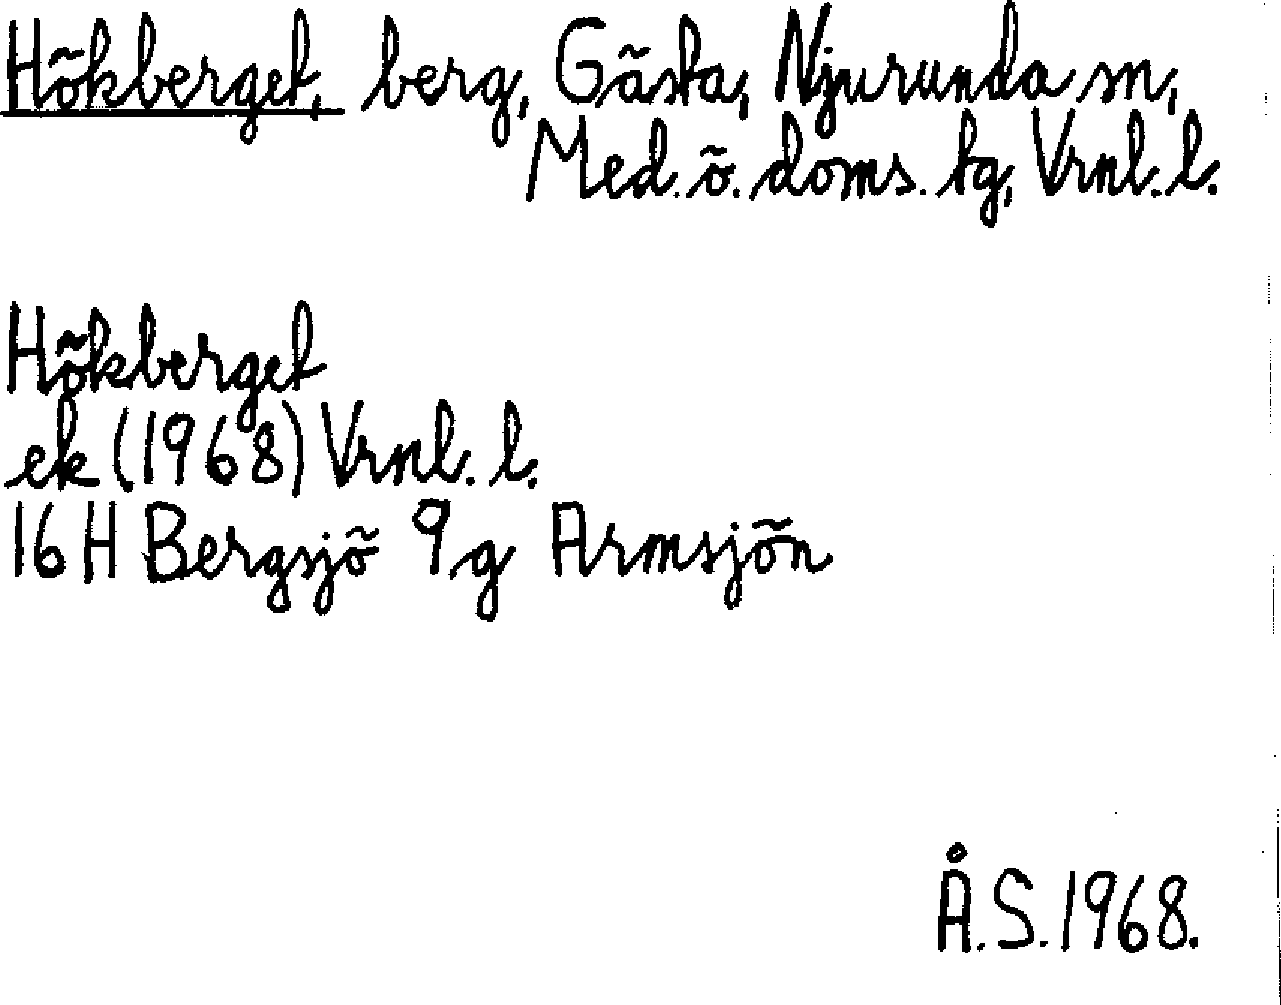 Hökberget, berg, Gästa, Njurunda sn,
Med. ö. doms. tg, Vrnl. l.
Hökberget
ek (1968) Vrnl. l.
16 H Bergsjö 9 g Armsjön
Å. S. 1968.